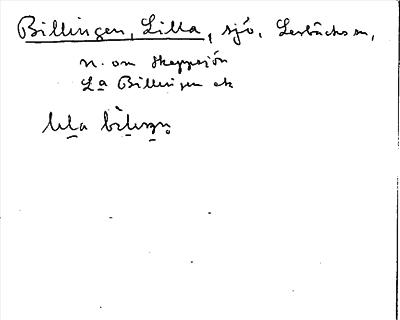 Billingen, Lilla, sjö, Lerbäcks sn,
n. om Skeppsjön
La Billingen ek
lıla